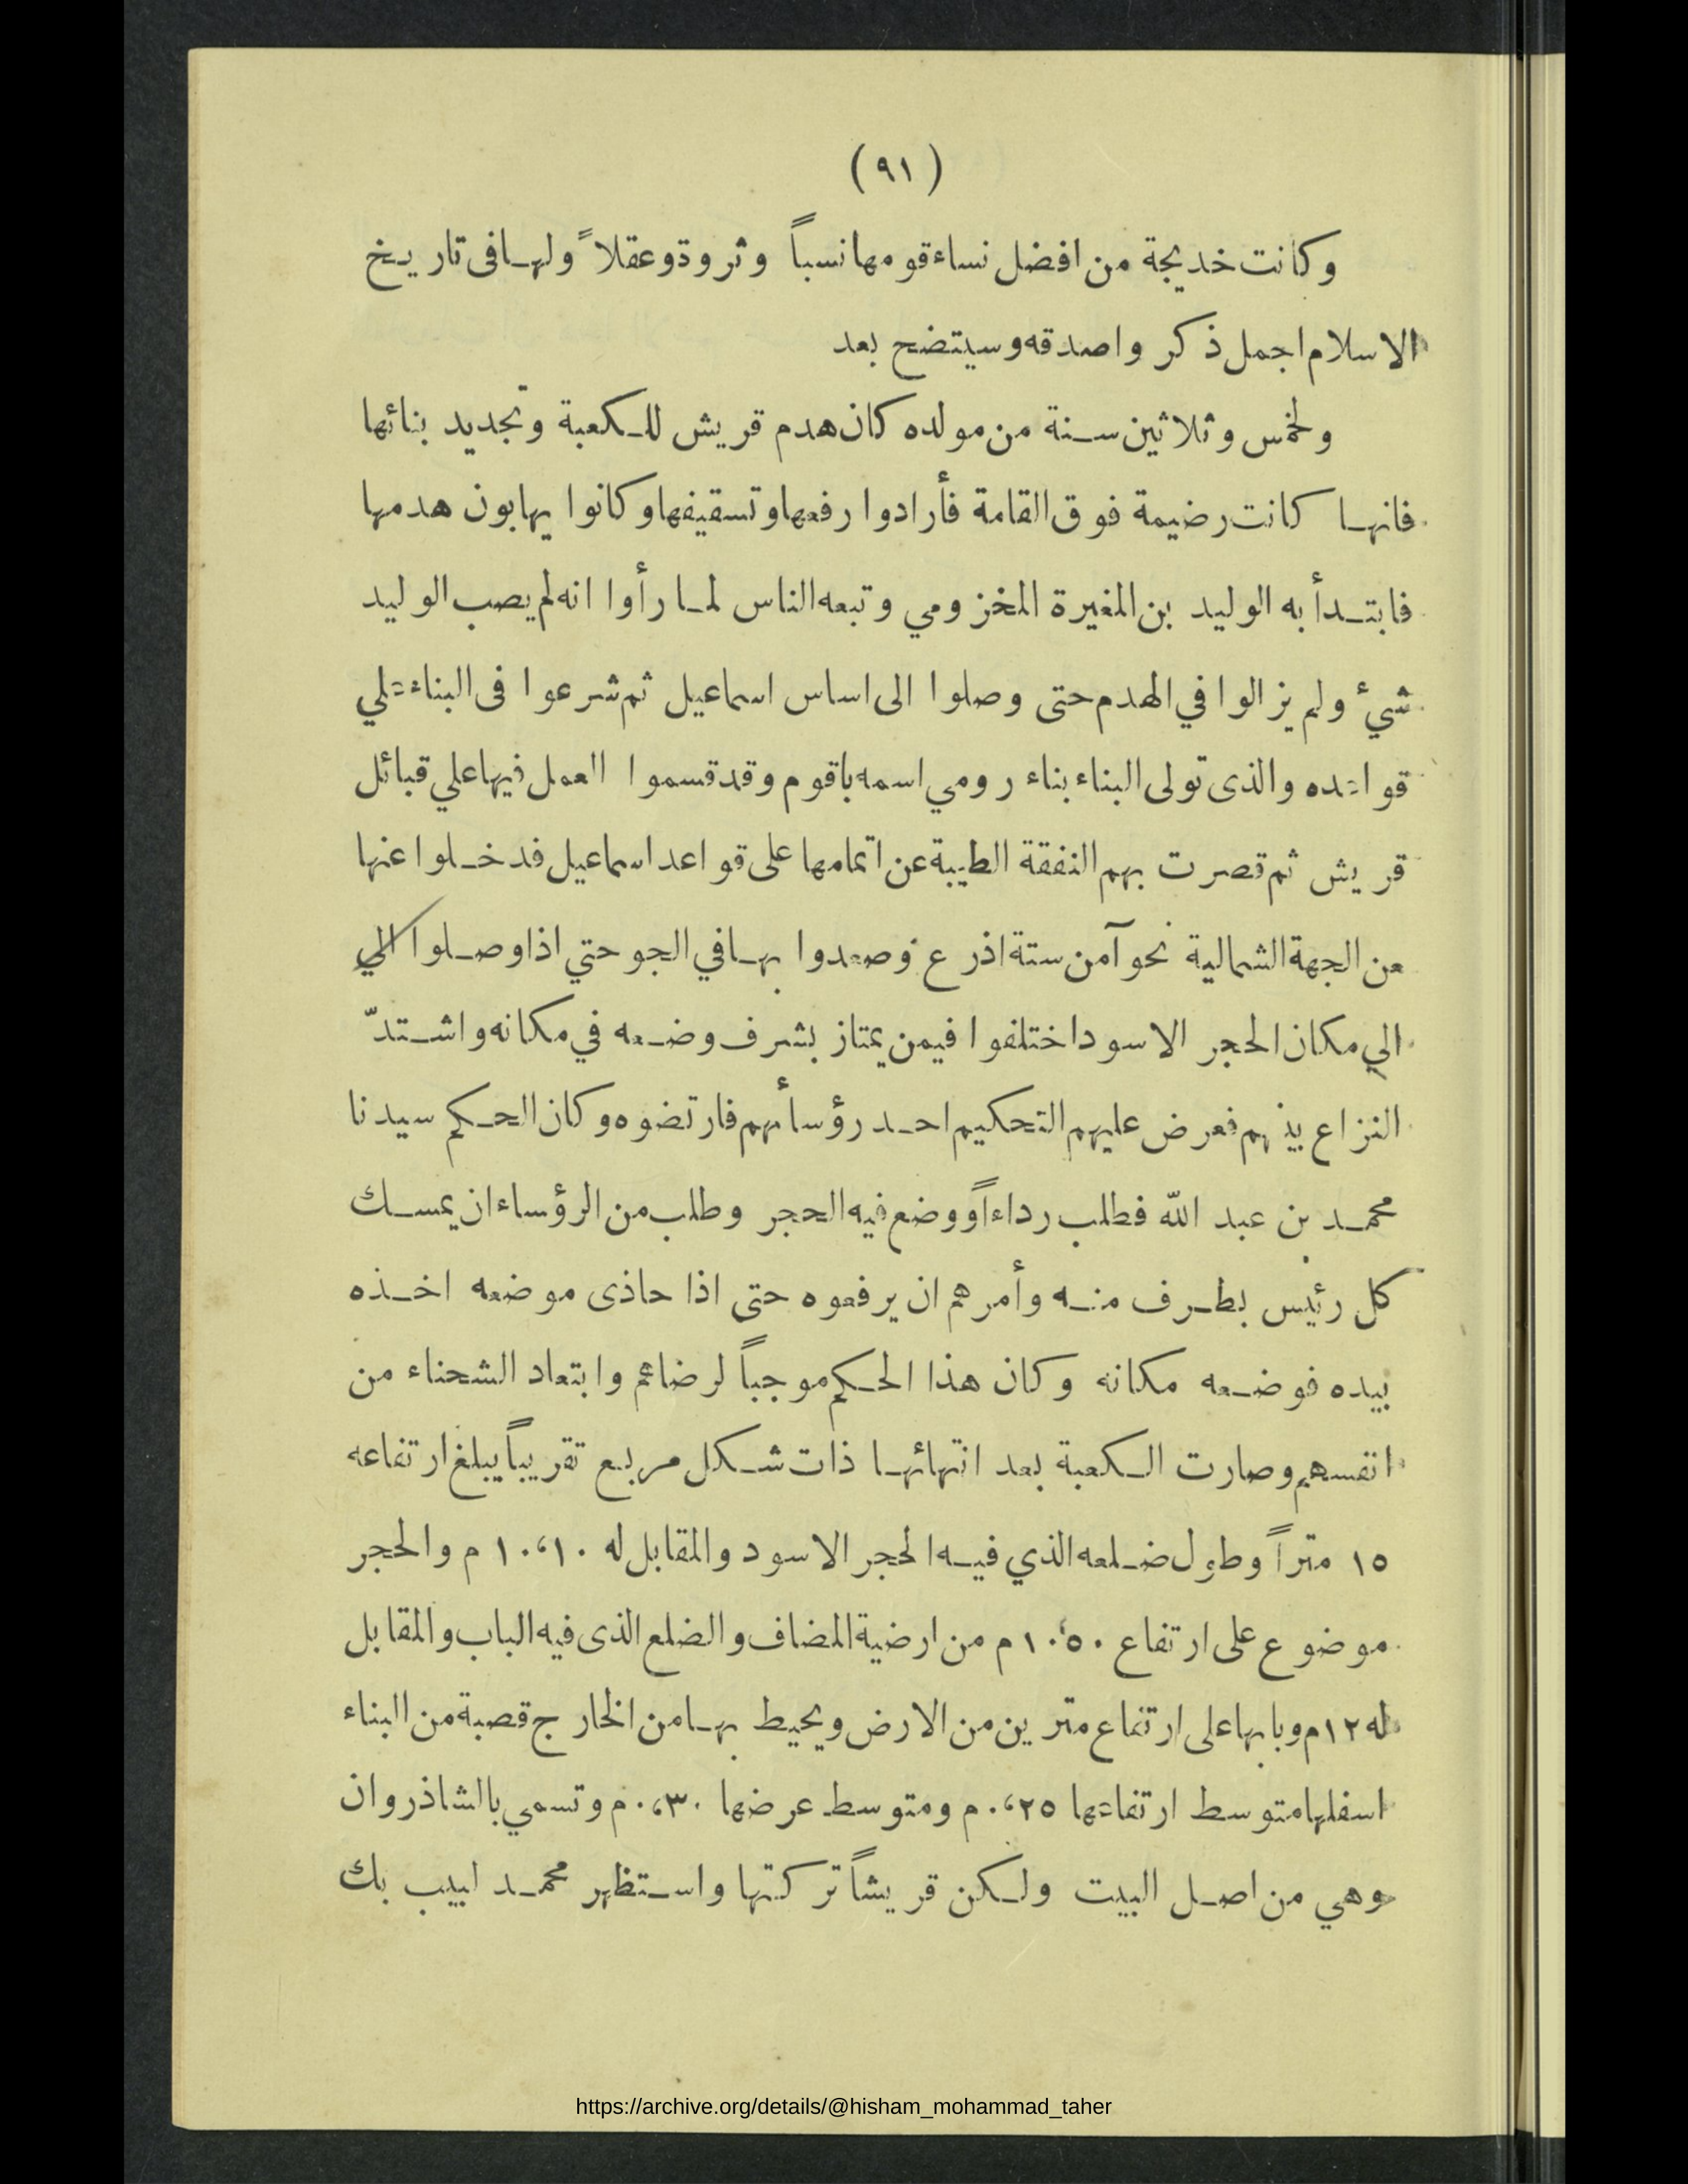 (٩١)
وكانت خديجة من افضل نساء قومها نسباً وثروة وعقلاً ولها فى تاريخ
الاسلام اجمل ذكر واصدقه وسيتضح بعد
ولخمس وثلاثين سنة من مولده كان هدم قريش للكعبة وتجديد بنائها
فانها كانت رضيمة فوق القامة فأرادوا رفعها وتسقيفها وكانوا يهابون هدمها
فابتدأ به الوليد بن المغيرة المخزومي وتبعه الناس لما رأوا انه لم يصب الوليد
شيء ولم يزالوا في الهدم حتى وصلوا الى اساس اسماعيل ثم شرعوا فى البناء علي
قواعده والذى تولى البناء بناء رومي اسمه باقوم وقد قسموا العمل فيها علي قبائل
قريش ثم قصرت بهم النفقة الطيبة عن اتمامها على قواعد اسماعيل فدخلوا عنها
من الجهة الشمالية نحوآ من ستة اذرع وصعدوا بها في الجو حتي اذا وصلوا الي
الي مكان الحجر الاسود اختلفوا فيمن يمتاز بشرف وضعه في مكانه واشتدّ
النزاع بينهم فعرض عليهم التحكيم احد رؤسأهم فارتضوه وكان الحكم سيدنا
محمد بن عبد الله فطلب رداءاً ووضع فيه الحجر وطلب من الرؤساء ان يمسك
كل رئيس بطرف منه وأمرهم ان يرفعوه حتى اذا حاذى موضعه اخذه
بيده فوضعه مكانه وكان هذا الحكم موجباً لرضائهم وابتعاد الشحناء من
انفسهم وصارت الكعبة بعد انتهائها ذات شكل مربع تقريباً يبلغ ارتفاعه
١٥ متراً وطول ضلعه الذي فيه الحجر الاسود والمقابل له ١٠،١٠ م والحجر
موضوع على ارتفاع ١٠،٥٠ م من ارضية المضاف والضلع الذى فيه الباب والمقابل
له ١٢م وبابها على ارتفاع مترين من الارض ويحيط بها من الخارج قصبة من البناء
اسفلها متوسط ارتفاعها ٠،٢٥ م ومتوسط عرضها ٠،٣٠ م وتسمي بالشاذروان
وهي من اصل البيت ولكن قريشاً تركتها واستظهر محمد لبيب بك
https://archive.org/details/@hisham_mohammad_taher